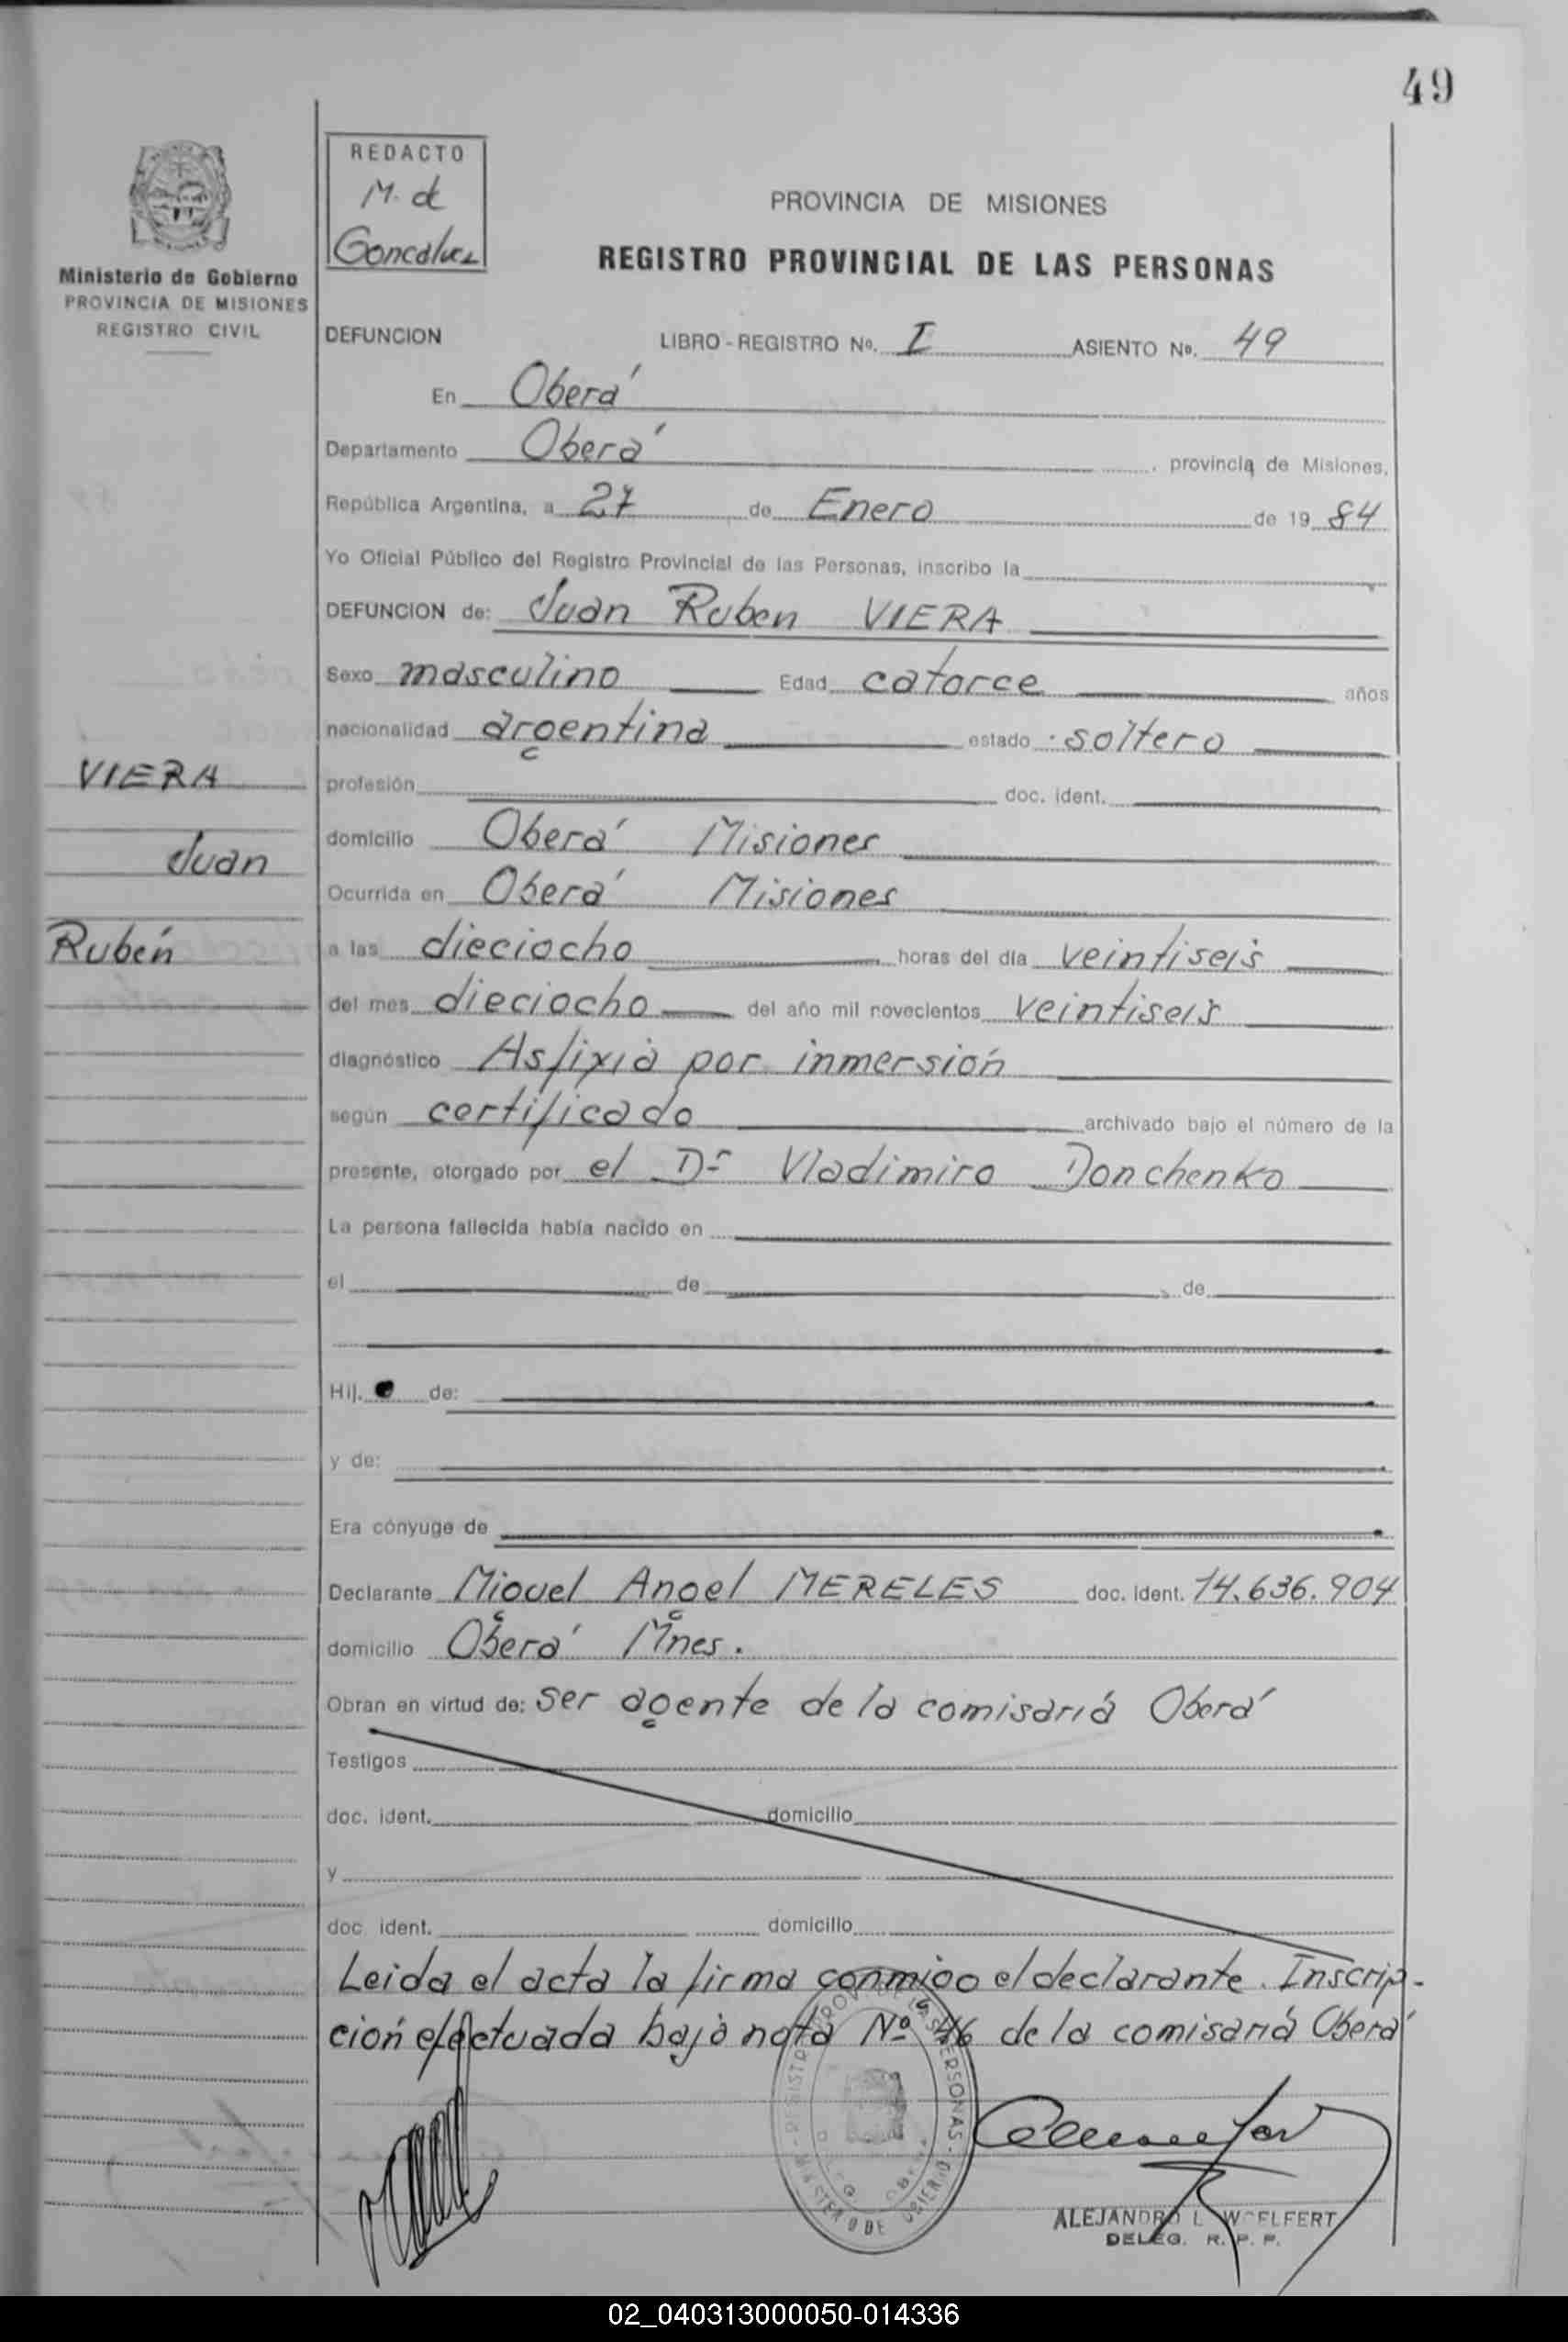 49
REDACTO
M. de
Goncalvez
Ministerio de Gobierno
PROVINCIA DE MISIONES
REGISTRO CIVIL
PROVINCIA DE MISIONES
REGISTRO PROVINCIAL DE LAS PERSONAS
DEFUNCION LIBRO - REGISTRO Nº. I ASIENTO Nº. 49
En Oberá
Departamento Oberá , provincia de Misiones,
República Argentina, a 27 de Enero de 19 84
Yo Oficial Público del Registro Provincial de las Personas, inscribo la
DEFUNCION de: Juan Ruben VIERA
Sexo masculino Edad catorce años
nacionalidad argentina estado soltero
VIERA
profesión doc. ident.
domicilio Oberá Misiones
Juan
Ocurrida en Oberá Misiones
Rubén
a las dieciocho horas del día veintiseis
del mes dieciocho del año mil novecientos veintiseis
diagnóstico Asfixia por inmersión
según certificado archivado bajo el número de la
presente, otorgado por el Dr Vladimiro Donchenko
La persona fallecida había nacido en
el de de
Hij. de:
y de:
Era cónyuge de
Declarante Miguel Angel MERELES doc. ident. 14.636.904
domicilio Oberá Mnes.
Obran en virtud de: ser agente de la comisaría Oberá
Testigos
doc. ident. domicilio
y
doc. ident. domicilio
Leida el acta la firma conmigo el declarante. Inscrip-
ción efectuada bajo nota Nº 46 de la comisaría Oberá
ALEJANDRO L. WOELFERT
DELEG. R. P. P.
02_040313000050-014336